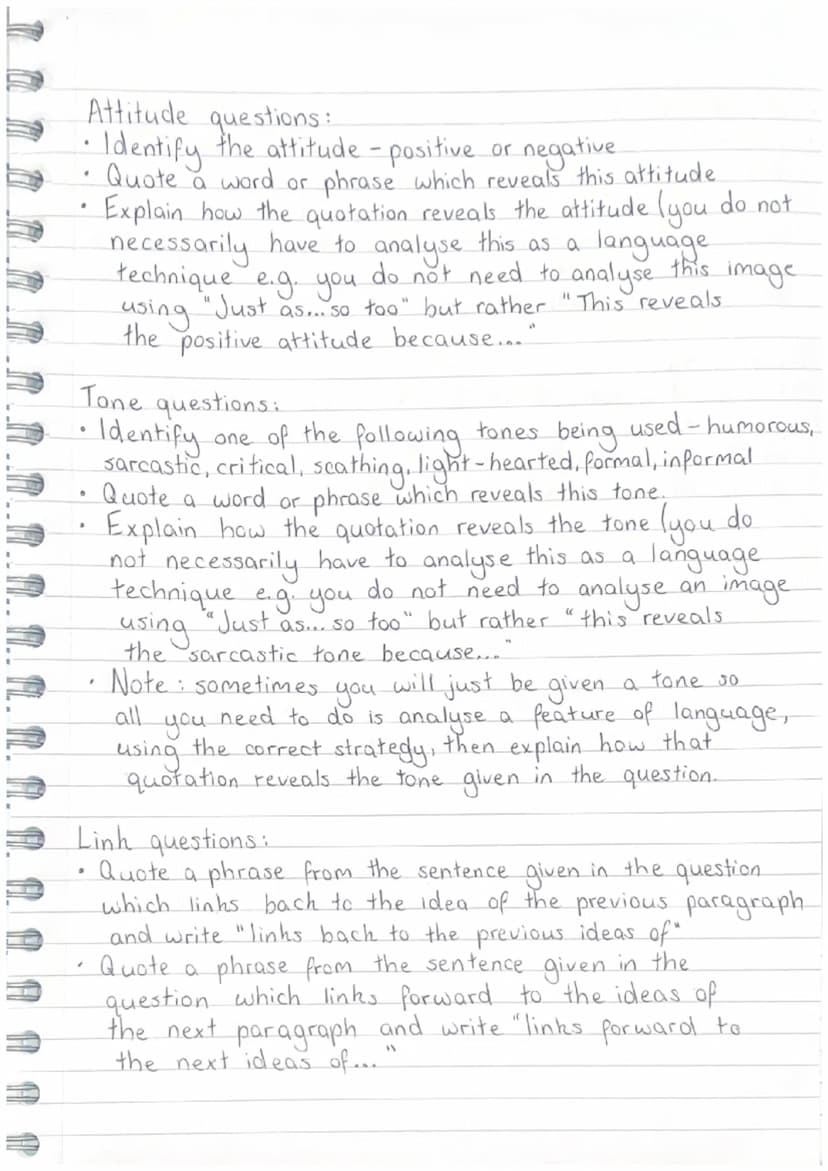 Attitude questions:
• Identify the attitude - positive or negative
• Quote a word or phrase which reveals this attitude
• Explain how the quotation reveals the attitude (you do not
necessarily have to analyse this as a language
technique e.g. you do not need to analyse this image
using "Just as... so too" but rather "This reveals
the positive attitude because..."
Tone questions:
• Identify one of the following tones being used - humorous,
sarcastic, critical, scathing, light-hearted, formal, informal
• Quote a word or phrase which reveals this tone.
• Explain how the quotation reveals the tone (you do
not necessarily have to analyse this as a language
technique e.g. you do not need to analyse an image
using "Just as... so too" but rather "this reveals
the sarcastic tone because..."
• Note: sometimes you will just be given a tone so
all you need to do is analyse a feature of language,
using the correct strategy, then explain how that
quotation reveals the tone given in the question.
Link questions:
• Quote a phrase from the sentence given in the question
which links back to the idea of the previous paragraph
and write "links back to the previous ideas of"
• Quote a phrase from the sentence given in the
question which links forward to the ideas of
the next paragraph and write "links forward to
the next ideas of..."